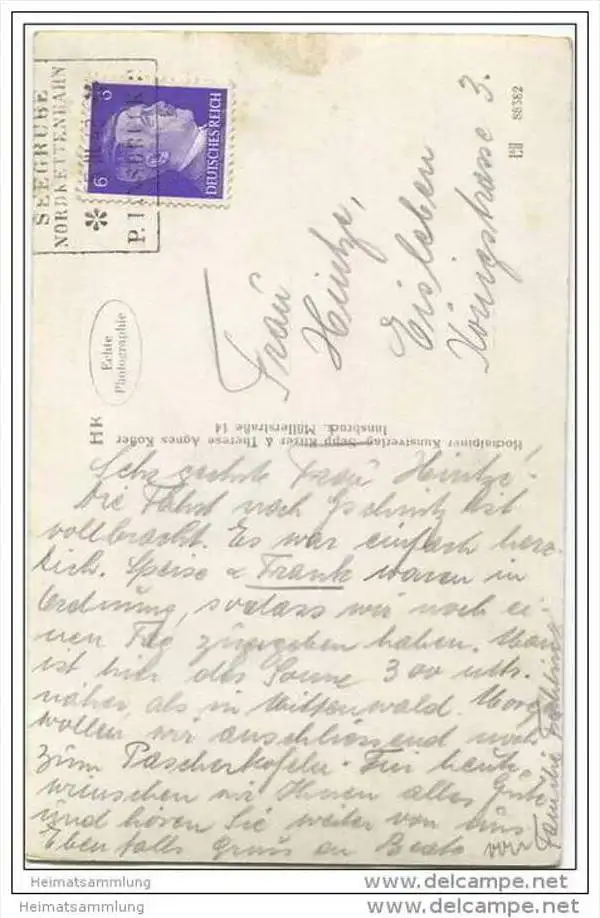 SEEGRUBE
NORDKETTENBAHN
P. INNSBRUCK 2
6 6
DEUTSCHES REICH
88382
Echte
Photographie
Frau
Heintze,
Eisleben
Königstrasse 3.
HK
Hochalpiner Kunstverlag Sepp Ritzer & Therese Agnes Kofler
Innsbruck, Müllerstraße 14
Sehr geehrte Frau Heintze!
Die Fahrt nach Gschnitz ist
vollbracht. Es war einfach herz-
lich. Speise & Trank waren in
Ordnung, sodass wir noch ei-
nen Tag zugegeben haben. Man
ist hier der Sonne 300 mtr.
näher als in Mittenwald. Morg.
wollen wir anschliessend noch
zum Patscherkofel. Für heute
wünschen wir Ihnen alles Gute
und hören Sie weiter von uns
Ebenfalls Gruss an Beate von
Familie
Heimatsammlung
www.delcampe.net
Heimatsammlung
www.delcampe.net